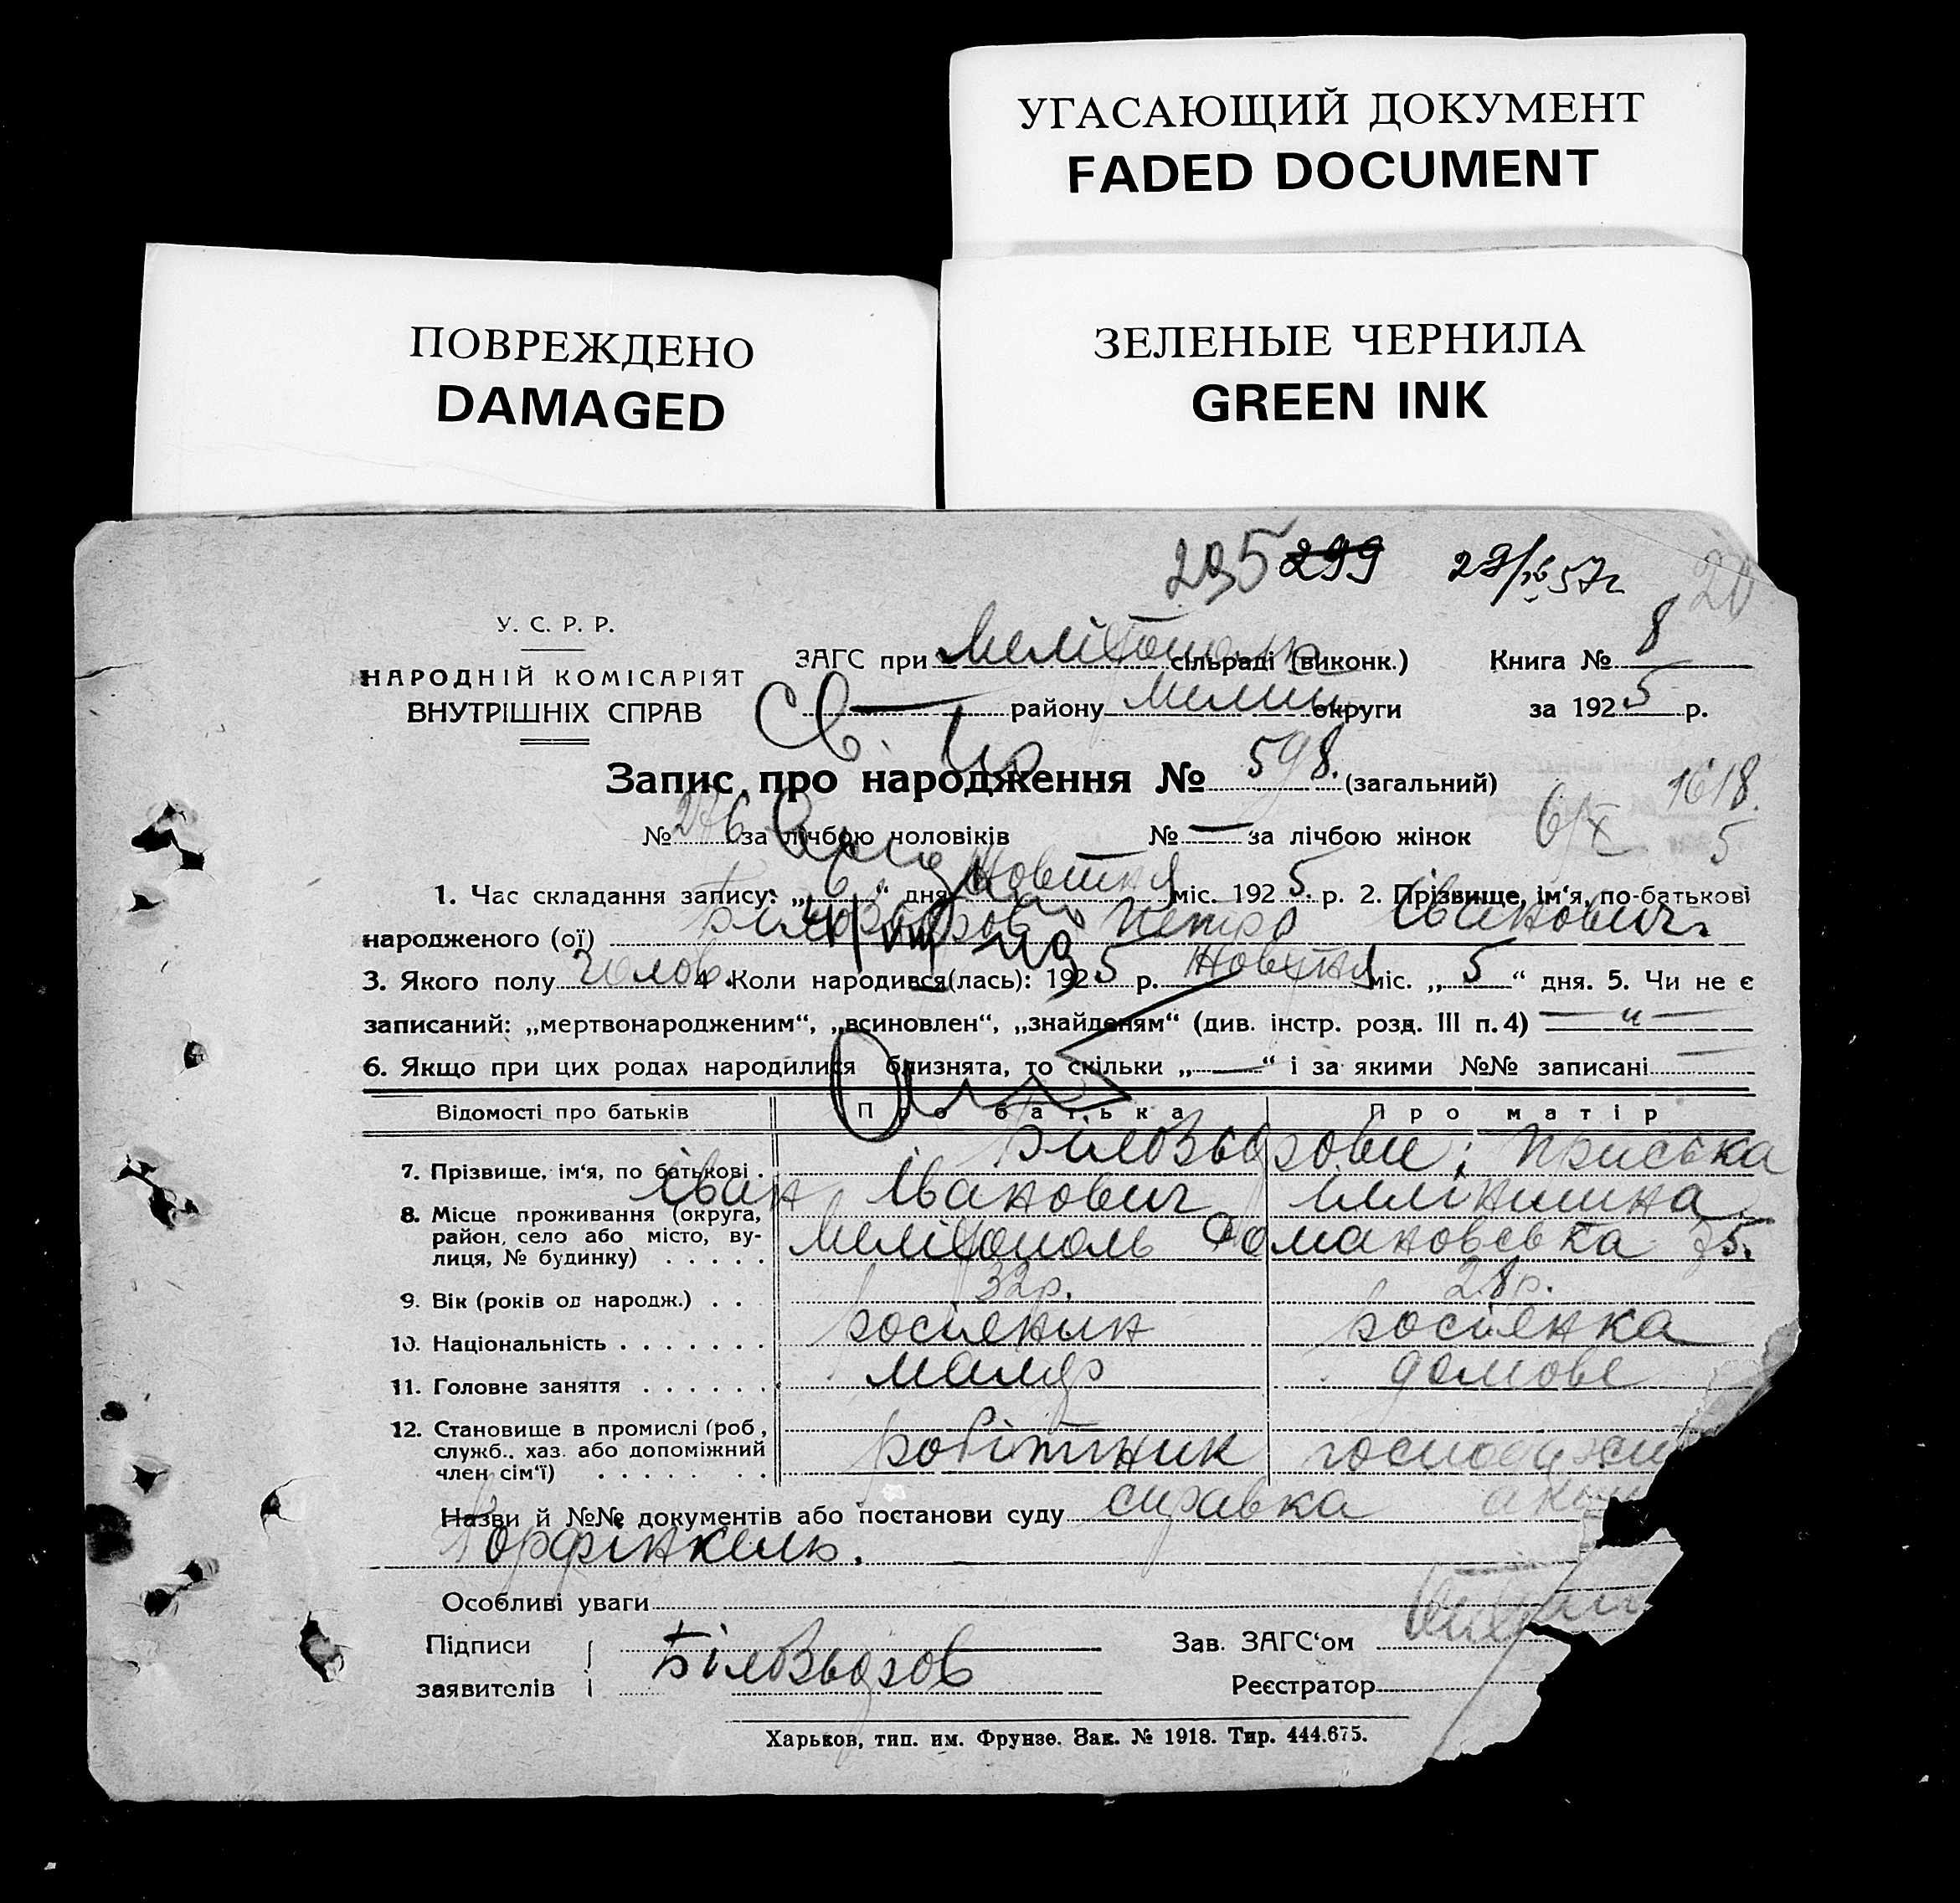 УГАСАЮЩИЙ ДОКУМЕНТ
FADED DOCUMENT
ПОВРЕЖДЕНО
DAMAGED
ЗЕЛЕНЫЕ ЧЕРНИЛА
GREEN INK
295 299 20
У. С. Р. Р.
НАРОДНІЙ КОМІСАРІЯТ
ВНУТРІШНІХ СПРАВ
ЗАГС при Мелітопольск сільраді (виконк.) Книга № 8
району Мелит. округи за 1925 р.
Св. №
Запис про народження № 598. (загальний) 1618.
№ 276 за лічбою чоловіків № — за лічбою жінок 6/X 5
1. Час складання запису: „6“ дня Жовтня міс. 1925 р. 2. Прізвище, ім‘я, по-батькові
народженого (ої) Білозьоров Петро Іванович.
3. Якого полу чолов. 4. Коли народився(лась): 1925 р. Жовтня міс. „5“ дня. 5. Чи не є
записаний: „мертвонародженим“, „всиновлен“, „знайденям“ (див. інстр. розд. III п. 4) — „ —
6. Якщо при цих родах народилися близнята, то скільки „—“ і за якими №№ записані —
Відомості про батьків Про батька Про матір
7. Прізвище, ім‘я, по батькові . Білозьорови; Приська
Іван Іванович Іллінишна
8. Місце проживання (округа, район, село або місто, вулиця, № будинку) . . . . . Мелітополь Романовська 75.
9. Вік (років од народж.) . . 32р. 28р.
10. Національність . . . . . . . росіянин росіянка
11. Головне заняття . . . . . . маляр домове
12. Становище в промислі (роб., служб., хаз. або допоміжний член сім‘ї) . . . . . . . робітник
Назви й №№ документів або постанови суду справка
Особливі уваги
Підписи
заявителів Білозьоров
Зав. ЗАГС‘ом
Реєстратор
Харьков, тип. им. Фрунзе. Зак. № 1918. Тир. 444.675.